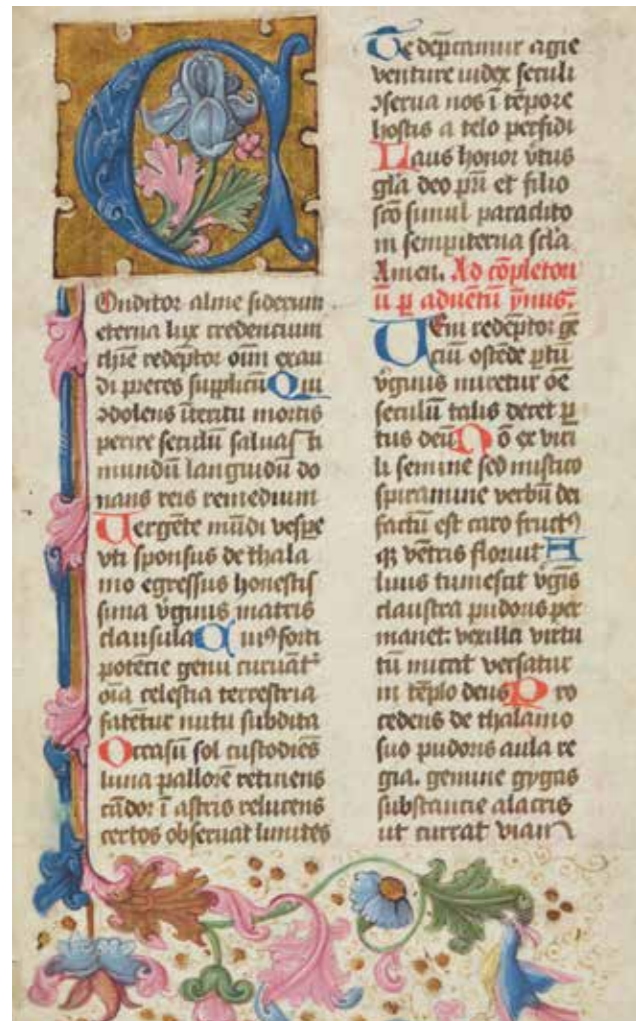 C
Onditor alme siderum
eterna lux credencium
christe redēptor oīm exau
di preces supplicū Qui
ɔdolens īteritu mortis
perire seculū saluasti
mundū languidū do
nans reis remedium
Uergēte mūdi vespe
vti sponsus de thala
mo egressus honestis
sima v̄ginis matris
clausula Cuiꝰ forti
potētie genu curuāt᷑
oīa celestia terrestria
fatētur nutu subdita
Occasū sol custodiēs
luna pallorē retinens
cādor ī astris relucens
certos obseruat limites
Te dep̄camur agie
venture iudex seculi
ɔserua nos ī tēpore
hostis a telo perfidi
Laus honor v̄tus
gl̄a deo pr̄i et filio
scō simul paraclito
in sempiterna scl̄a
Amen. Ad cōpletori
ū ꝑ aduētū ymnus.
Ueni redēptor gē
ciū ostēde ꝑtū
v̄ginis miretur oē
seculū talis decet ꝑ
tus deū Nō ex viri
li semine sed mistico
spiramine verbū dei
factū est caro fructꝰ
qꝫ vētris floruit A
luus tumescit v̄gīs
claustra pudoris per
manet: vexilla virtu
tū micāt versatur
in tēplo deus Pro
cedens de thalamo
suo pudoris aula re
gia. gemine gygas
substancie alacris
ut currat viam